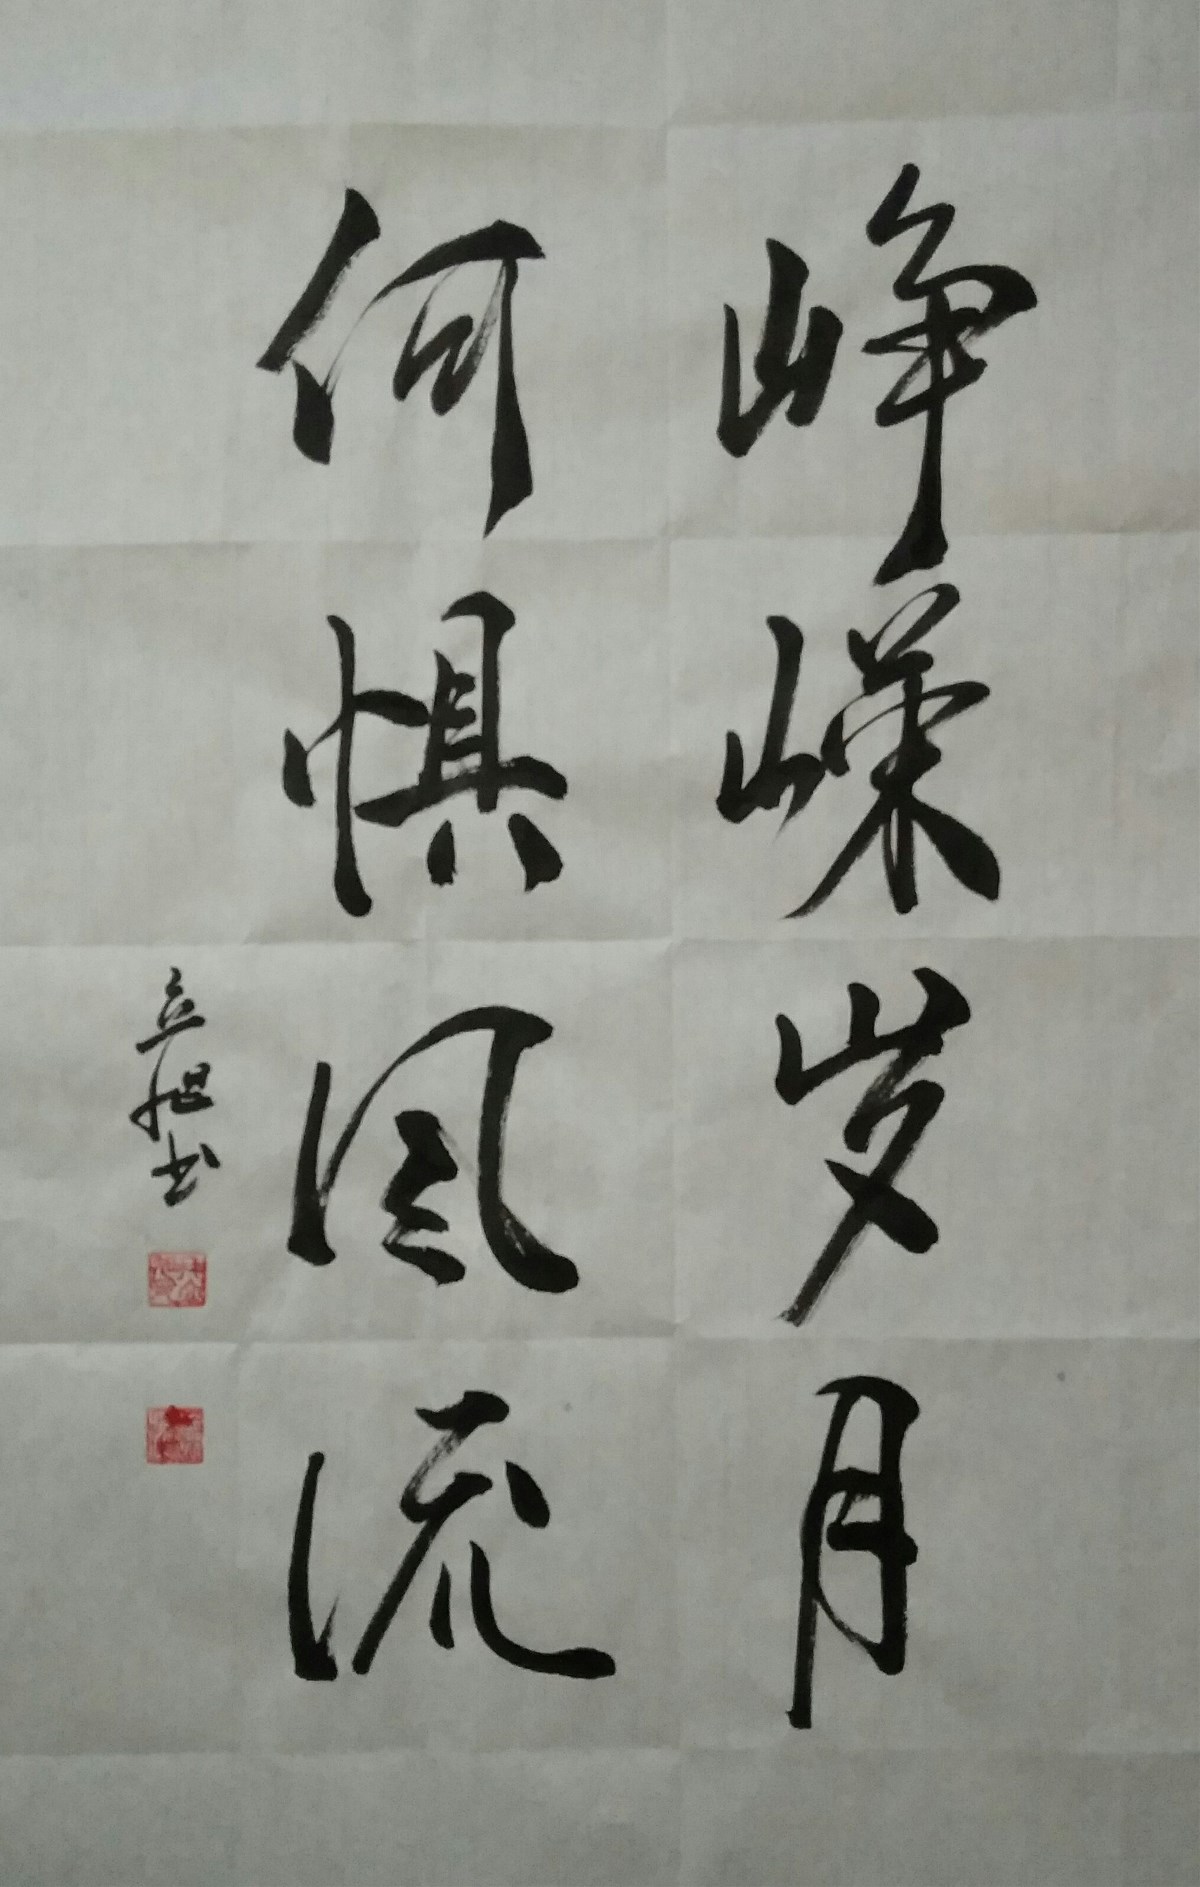 峥嵘岁月
何惧风流
立旭书